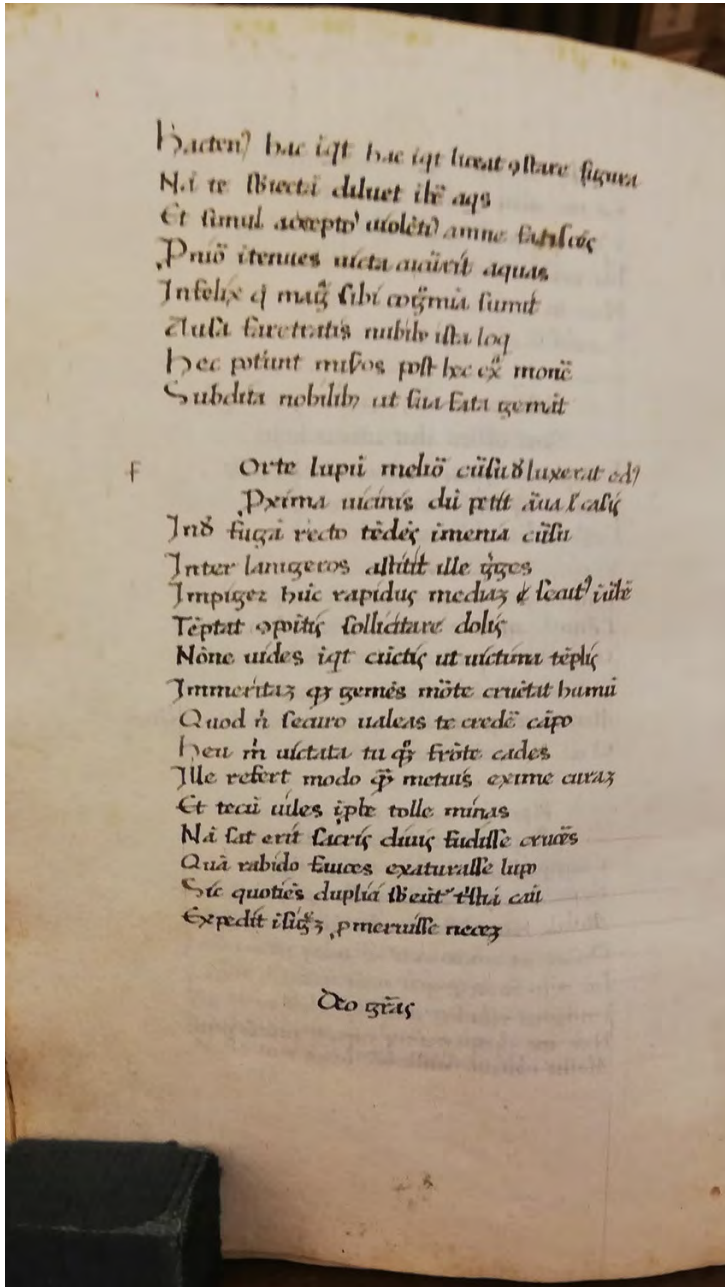 Hactenꝰ hac iqt hac iqt liceat ꝯstare figura
Nā te sbiectā diluet ibr̄ aqs
Et simul accepto uiolētꝰ amne fatiscēs
Pniō itenues uicta cucurit aquas
Infelix q̄ mag̊ sibi cog̊mia sumit
Ausa faretratis nubibꝫ ista loq
Hec potunt miseros post hec ex̊ monē
Subdita nobilibꝫ ut sua fata gemāt
F Orte lupū meliō cūsu ꝺluxerat edꝰ
Pxima uicinis dū petit aūa ł casis
Inꝺ fugā recto tēdēs imenia cūsu
Inter lanigeros astitit ille g̊ges
Impigeꝛ hūc rapidus mediaꝫ secutꝰ iūbē
Tēptat ꝯpoitis sollicitare dolis
Nōne uides iqt cūctis ut uictima tēplis
Immeritaꝫ gemēs mōte cruētat humū
Quod n̄ securo ualeas te credē cāpo
Heu m̄ uictata tu qꝫ frōte cades
Ille refert modo q̄ metuis exime curaꝫ
Et tecū uiles iꝓbe tolle minas
Nā sat erit sacris diuis fudisse cruōs
Quā rabido fauces exaturasse lupo
Sic quotiēs duplici sb eūt tͥstia casu
Expedit isigēꝫ ꝓmeruisse neceꝫ
Deo gr̄as